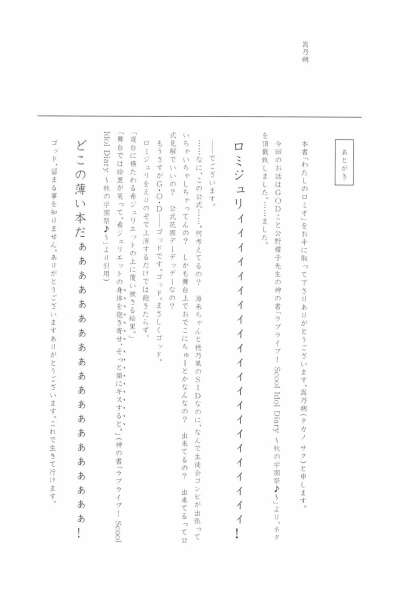 高乃朔
あとがき
本書「わたしのロミオ」をお手に取って下さりありがとうございます。高乃朔(タカノ サク)と申します。
今回のお話はGODこと公野櫻子先生の神の書「ラブライブ! Scool Idol Diary ～秋の学園祭♪～」より、ネタ
を頂戴致しました。……ました。
ロミジュリィィィィィィィィィィィィィィィィィ!
――でございます。
……なに、この公式……。何考えてるの? 海未ちゃんと穂乃果のSIDなのに、なんで生徒会コンビが出張って
いちゃいちゃしちゃってんの? しかも舞台上でおでこにちゅーとかなんなの? 出来てるの? 出来てるって公
式見解でいいの? 公式花園デーデッデーなの?
もうさすがG・O・D――ゴッドです。ゴッド。まさしくゴッド。
ロミジュリをえりのぞで上演するだけでは飽きたらず。
「寝台に横たわる希ジュリエットの上に覆い被さる絵里。」
「舞台では絵里が笑って、希ジュリエットの身体を抱き寄せ、そっと額にキスすると。」(神の書「ラブライブ! Scool
Idol Diary ～秋の学園祭♪～」より引用)
どこの薄い本だぁぁぁぁぁぁぁぁぁぁぁぁぁぁぁ!
ゴッド、留まる事を知りません。ありがとうございますありがとうございます。これで生きて行けます。